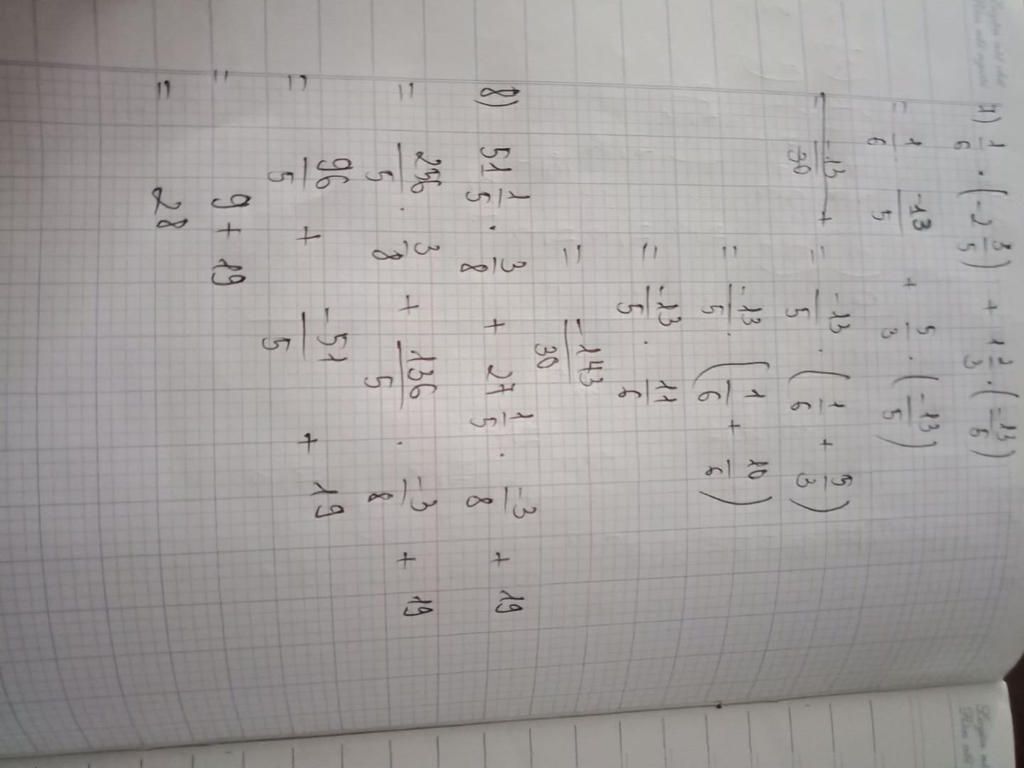 7) 1/6 · (-2 3/5) + 1 2/3 · (-13/5)
= 1/6 -13/5 + 5/3 · (-13/5)
= -13/30 +
= -13/5 · (1/6 + 5/3)
= -13/5 · (1/6 + 10/6)
= -13/5 · 11/6
= -143/30
8) 51 1/5 · 3/8 + 27 1/5 · -3/8 + 19
= 256/5 · 3/8 + 136/5 · -3/8 + 19
= 96/5 + -51/5 + 19
= 9 + 19
= 28